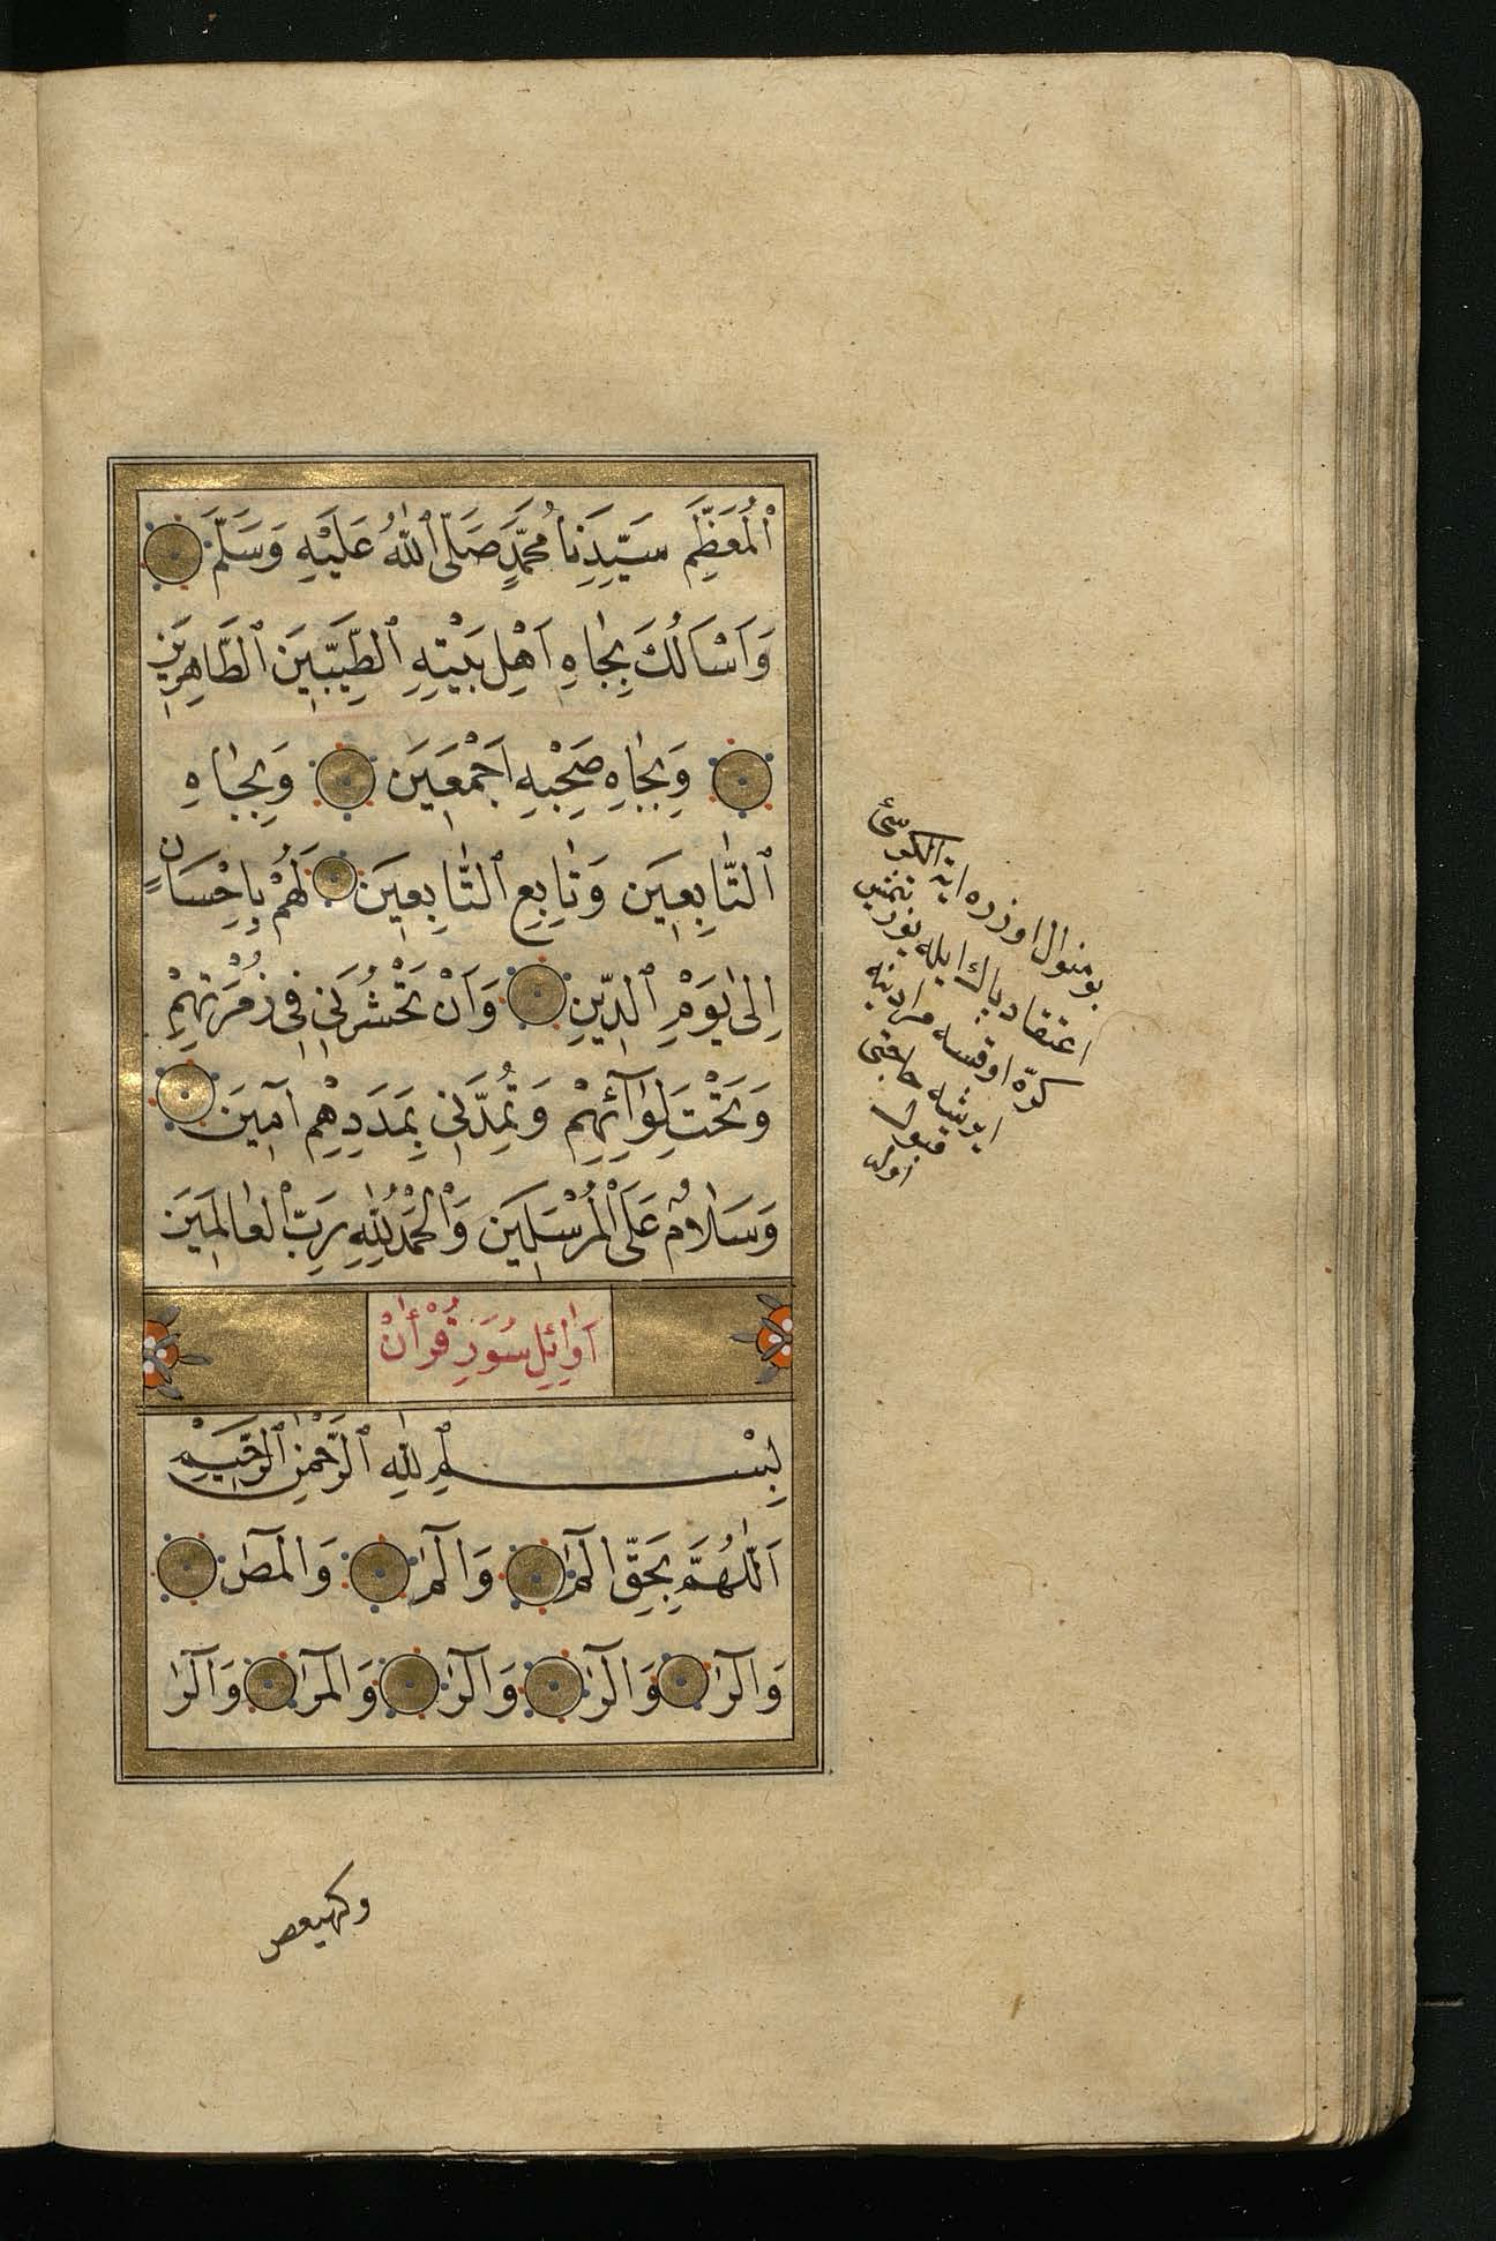 اَلْمُعَظَّمِ سَيِّدِنَا مُحَمَّدٍ صَلَّى اللّٰهُ عَلَيْهِ وَسَلَّمَ
وَاَسْاَلُكَ بِجَاهِ اَهْلِ بَيْتِهِ الطَّيِّبِينَ الطَّاهِرِينَ
وَبِجَاهِ صَحْبِهِ اَجْمَعِينَ وَبِجَاهِ
التَّابِعِينَ وَتَابِعِ التَّابِعِينَ لَهُمْ بِاِحْسَانٍ
اِلٰى يَوْمِ الدِّينِ وَاَنْ تَحْشُرَنِي فِي زُمْرَتِهِمْ
وَتَحْتَ لِوَآئِهِمْ وَتُمِدَّنِي بِمَدَدِهِمْ اٰمِينَ
وَسَلَامٌ عَلَى الْمُرْسَلِينَ وَالْحَمْدُ لِلّٰهِ رَبِّ الْعَالَمِينَ
اَوَائِلِ سُوَرِ قُرْاٰنْ
بِسْمِ اللّٰهِ الرَّحْمٰنِ الرَّحِيمِ
اَللّٰهُمَّ بِحَقِّ الٓمٓ وَالٓمٓ وَالٓمٓصٓ
وَالٓرٰ وَالٓرٰ وَالٓرٰ وَالٓمٓرٰ وَالٓرٰ
بو منوال اوزره اية الكرسئ
اعتقاد پاك ايله يوز يتمش
كرّه اوقسه مرادينه
ايريشه حاجتى
قبول
اوله
وكهيعص